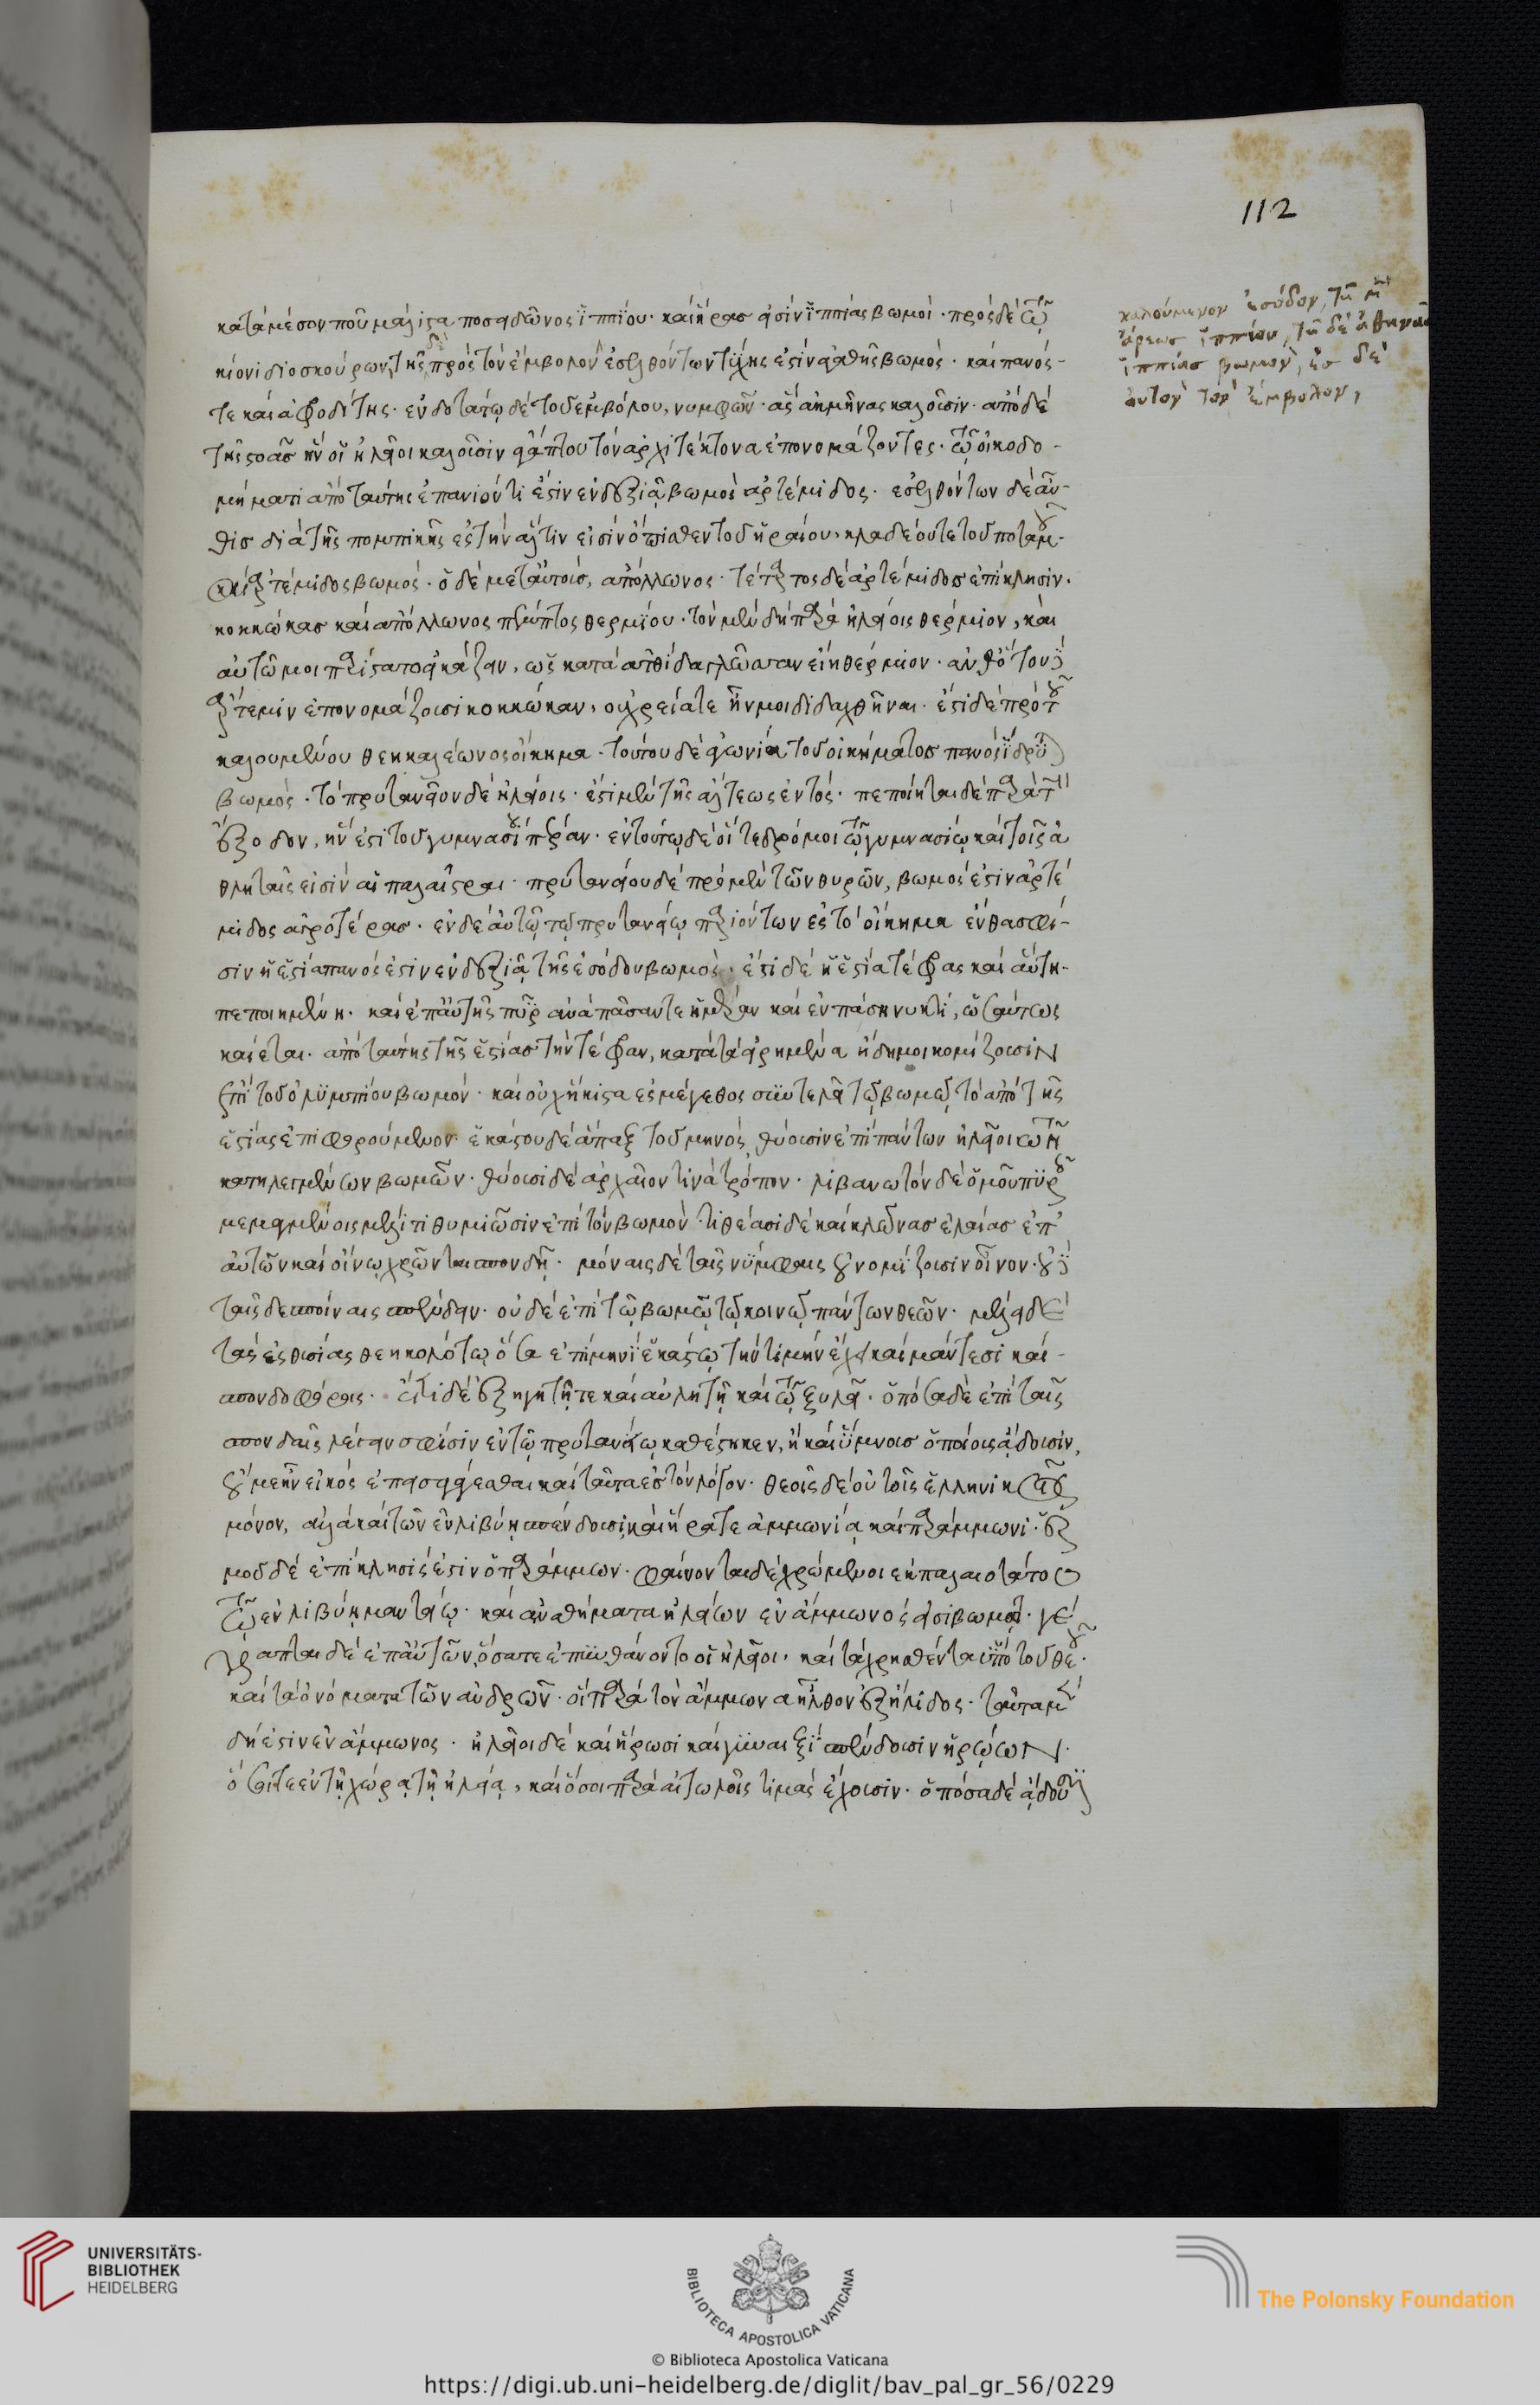 112
καλούμενον ἐσόδον, τῆ μὲν
ἄρεως ἱππίου, τῆ δὲ ἀθηνᾶς
ἱππίας βωμὸν, ἐς δὲ
ἀυτὸν τὸν ἔμβολον,
κατὰ μέσον που μάλιστα ποσειδῶνος ἱππίου· καὶ ἥρας εἰσὶν ἱππίας βωμοί· πρὸς δὲ τῶ
κίονι διοσκούρων, τῆς δὲ πρὸς τὸν ἔμβολον ἐσελθόντων τύχης ἐστὶν ἀγαθῆς βωμός· καὶ πανός
τε καὶ ἀφροδίτης· ἐνδοτάτω δὲ τοῦ ἐμβόλου, νυμφῶν· ἃς ἀκμηνὰς καλοῦσιν· ἀπὸ δὲ
τῆς στοᾶς ἣν οἱ ἠλεῖοι καλοῦσιν ἀγάπτου τὸν ἀρχιτέκτονα ἐπονομάζοντες· τῶ οἰκοδο
μήματι ἀπὸ ταύτης ἐπανιόντι ἐστὶν ἐν δεξιᾷ βωμὸς ἀρτέμιδος· ἐσελθόντων δὲ αὖ
θις διὰ τῆς πομπικῆς ἐς τὴν ἄλτιν εἰσὶν ὄπισθεν τοῦ ἡραίου, κλαδέου τε τοῦ ποταμοῦ
καὶ ἀρτέμιδος βωμός· ὁ δὲ μετ' αὐτοὺς, ἀπόλλωνος· τέταρτος δὲ ἀρτέμιδος ἐπίκλησιν
κοκκώκας καὶ ἀπόλλωνος πέμπτος θερμίου· τὸν μὲν δὴ παρὰ ἠλείοις θέρμιον, καὶ
αὐτῶ μοι παρίστατο εἰκάζειν, ὡς κατὰ ἀτθίδα γλῶσσαν εἴη θέρμιον· ἀνθότου δὲ
ἄρτεμιν ἐπονομάζουσι κοκκώκαν, οὐχ οἷά τε ἦν μοι διδαχθῆναι· ἔστι δὲ πρὸ τοῦ
καλουμένου θεηκολεῶνος οἴκημα· τούτου δὲ ἐν γωνία τοῦ οἰκήματος πανὸς ἵδρυται
βωμός· τὸ πρυτανεῖον δὲ ἠλείοις· ἔστι μὲν τῆς ἄλτεως ἐντός· πεποίηται δὲ παρὰ τὴν
ἔξοδον, ἥ ἐστι τοῦ γυμνασίου πέραν· ἐν τούτω δὲ οἵ τε δρόμοι τῶ γυμνασίω καὶ τοῖς ἀ
θληταῖς εἰσὶν αἱ παλαῖστραι· πρυτανείου δὲ πρὸ μὲν τῶν θυρῶν, βωμός ἐστιν ἀρτέ
μιδος ἀγροτέρας· ἐν δὲ αὐτῶ τῶ πρυτανείω παριόντων ἐς τὸ οἴκημα ἔνθα σφί
σιν ἡ ἑστία πανός ἐστιν ἐν δεξιᾷ τῆς ἐσόδου βωμός· ἔστι δὲ ἡ ἑστία τέφρας καὶ αὕτη
πεποιημένη· καὶ ἐπ' αὐτῆς πῦρ ἀνὰ πᾶσαν τε ἡμέραν καὶ ἐν πάση νυκτὶ, ὡσαύτως
καίεται· ἀπὸ ταύτης τῆς ἑστίας τὴν τέφραν, κατὰ τὰ εἰρημένα ἤδη μοι κομίζουσιν
ἐπὶ τοῦ ὀλυμπίου βωμόν· καὶ οὐχ ἥκιστα ἐς μέγεθος συντελεῖ τῶ βωμῶ τὸ ἀπὸ τῆς
ἑστίας ἐπιφερούμενον· ἑκάστου δὲ ἅπαξ τοῦ μηνὸς θύουσιν ἐπὶ πάντων ἠλεῖοι τῶν
κατηλεγμένων βωμῶν· θύουσι δὲ ἀρχαῖόν τινα τρόπον· λιβανωτὸν δὲ ὁμοῦ πυροῖς
μεμιγμένοις μέλιτι θυμιῶσιν ἐπὶ τὸν βωμὸν· τιθέασι δὲ καὶ κλῶνας ἐλαίας ἐπ'
αὐτῶν καὶ οἴνω χρῶνται σπονδῇ· μόναις δὲ ταῖς νύμφαις οὐ νομίζουσιν οἶνον· οὐδὲ
ταῖς δεσποίναις σπένδειν· οὐδὲ ἐπὶ τῶ βωμῶ τῶ κοινῶ πάντων θεῶν· μέλει δὲ
τὰς ἐς θυσίας θεηκολότω ὅσα ἐπὶ μηνὶ ἑκάστω τὴν τιμὴν ἔχει καὶ μάντεσι καὶ
σπονδοφόροις· ἔτι δὲ ἐξηγητῇ τε καὶ αὐλητῇ καὶ τῶ ξυλεῖ· ὁπόσα δὲ ἐπὶ ταῖς
σπονδαῖς λέγειν σφίσιν ἐν τῶ πρυτανείω καθέστηκεν, ἢ καὶ ὕμνοις ὁποίοις ᾄδουσιν,
οὔ με ἦν εἰκὸς ἐπεισαγαγέσθαι καὶ ταῦτα ἐς τὸν λόγον· θεοῖς δὲ οὐ τοῖς ἑλληνικοῖς
μόνον, ἀλλὰ καὶ τῶν ἐν λιβύη σπένδουσι, καὶ ἥρα τε ἀμμωνία καὶ παράμμωνι· ἑρ
μοῦ δὲ ἐπίκλησίς ἐστιν ὁ παράμμων· φαίνονται δὲ χρώμενοι ἐκ παλαιοτάτου
τῶ ἐν λιβύη μαντείω· καὶ ἀναθήματα ἠλείων ἐν ἄμμωνός εἰσι βωμοί· γέ
γραπται δὲ ἐπ' αὐτῶν, ὅσα τε ἐπυνθάνοντο οἱ ἠλεῖοι, καὶ τὰ χρησθέντα ὑπὸ τοῦ θεοῦ·
καὶ τὰ ὀνόματα τῶν ἀνδρῶν· οἳ παρὰ τὸν ἄμμωνα ἦλθον ἐξ ἤλιδος· ταῦτα μὲν
δή ἐστιν ἐν ἄμμωνος· ἠλεῖοι δὲ καὶ ἥρωσι καὶ γυναιξὶ σπένδουσιν ἡρώων·
ὅσοι τε ἐν τῇ χώρα τῇ ἠλεία, καὶ ὅσοι παρὰ αἰτωλοῖς τιμὰς ἔχουσιν· ὁπόσα δὲ ᾄδουσιν
UNIVERSITÄTS-
BIBLIOTHEK
HEIDELBERG
BIBLIOTECA APOSTOLICA VATICANA
The Polonsky Foundation
© Biblioteca Apostolica Vaticana
https://digi.ub.uni-heidelberg.de/diglit/bav_pal_gr_56/0229